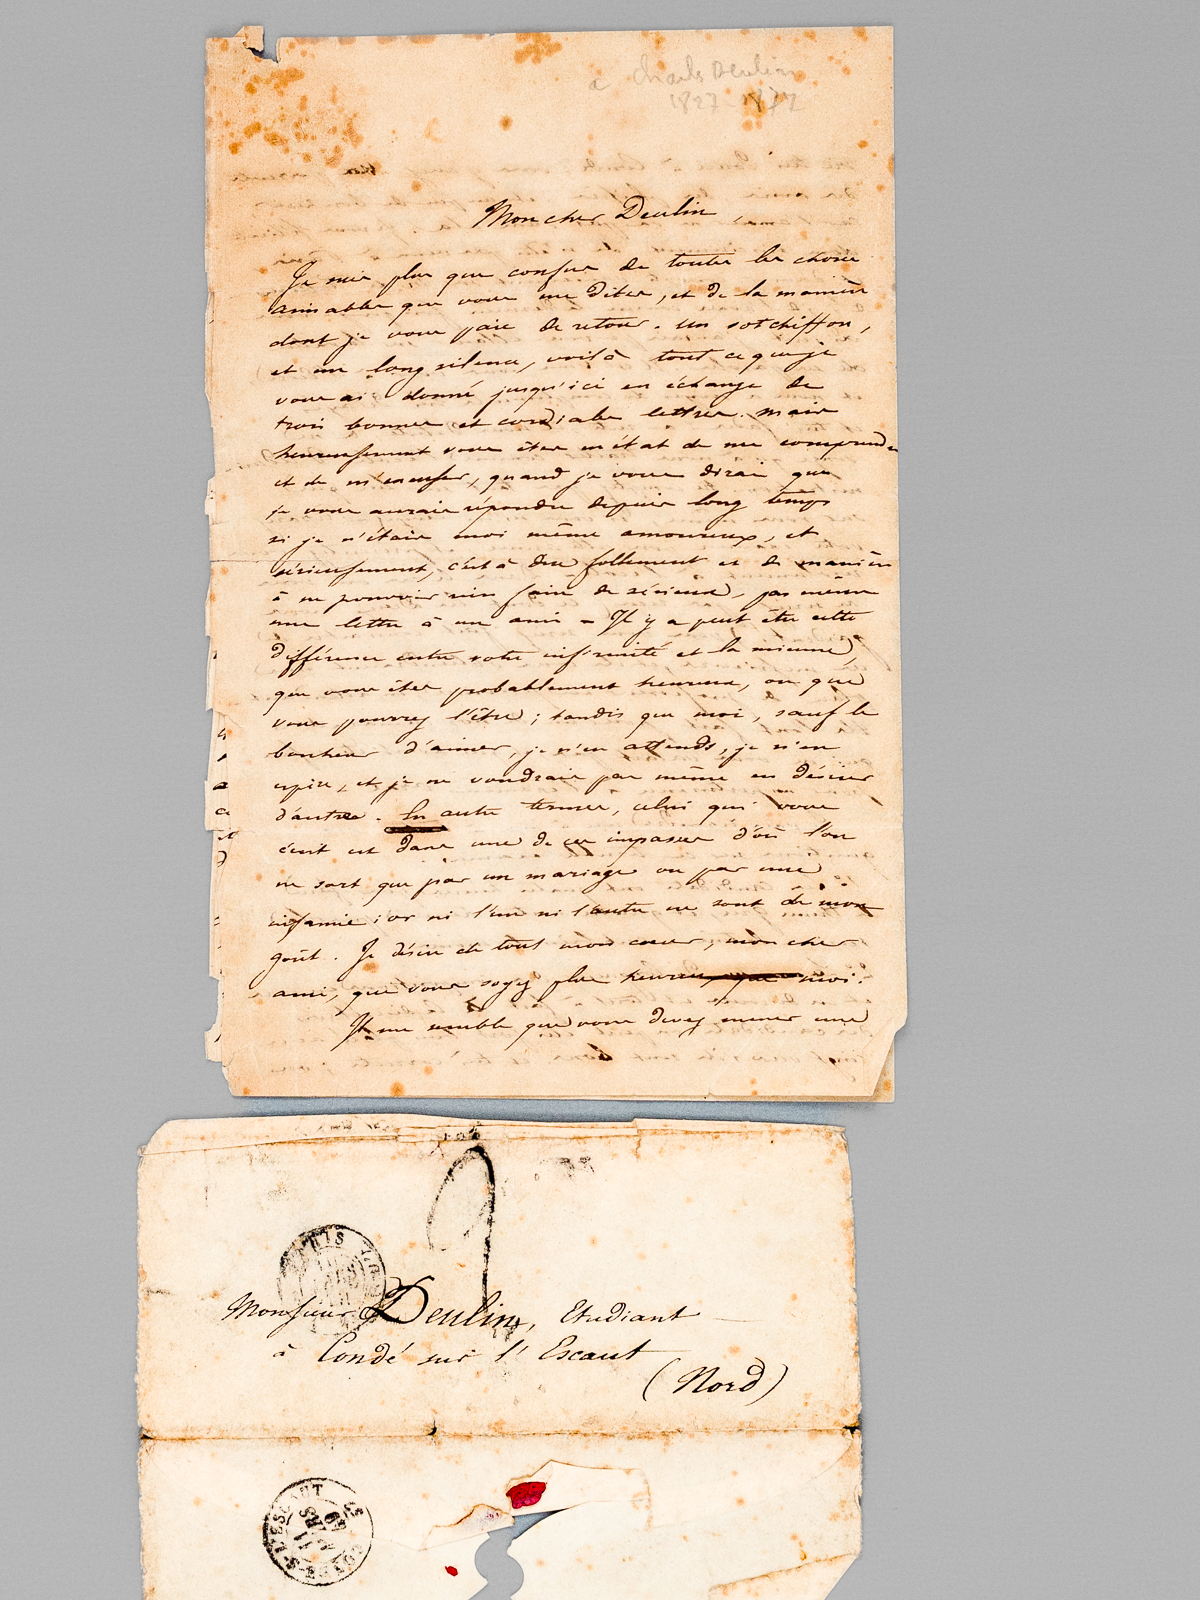 à Charles Deulin
1827-1877
Mon cher Deulin
Je suis plus que confus de toutes les choses
aimables que vous me dites, et de la manière
dont je vous paie de retour. Un sot chiffon,
et un long silence, voilà tout ce que je
vous ai donné jusqu'ici en échange de
trois bonnes et cordiales lettres. Mais
heureusement vous êtes en état de me comprendre
et de m'excuser, quand je vous dirai que
je vous aurais répondu depuis long temps
si je n'étais moi même amoureux, et
sérieusement, c'est à dire follement et de manière
à ne pouvoir rien faire de sérieux, pas même
une lettre à un ami - Il y a peut être cette
différence entre votre infirmité et la mienne,
que vous êtes probablement heureux, ou que
vous pourrez l'être ; tandis que moi, sauf le
bonheur d'aimer, je n'en attends, je n'en
espère, et je ne voudrais pas même en désirer
d'autre. En autres termes, celui qui vous
écrit est dans une de ces impasses d'où l'on
ne sort que par un mariage ou par une
infamie : or ni l'un ni l'autre ne sont de mon
goût. Je désire de tout mon cœur, mon cher
ami, que vous soyez plus heureux que moi.
Il me semble que vous devez mener une
PARIS
Monsieur Deulin, Etudiant
à Condé sur l'Escaut
(Nord)
CONDÉ-S-L'ESCAUT